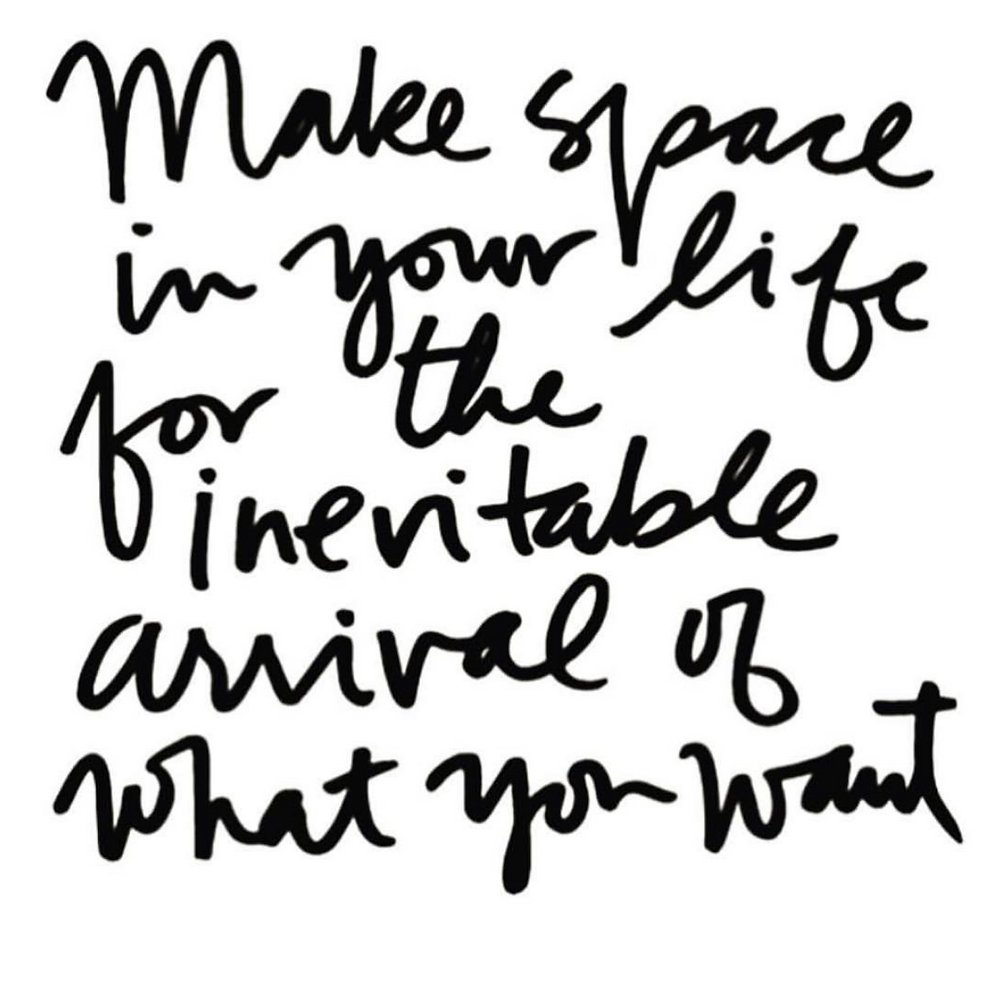 Make space
in your life
for the
inevitable
arrival of
what you want